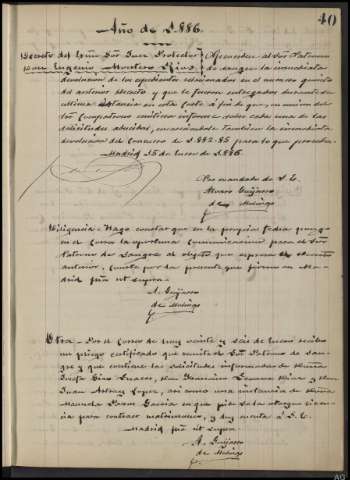 40
Año de 1.886.
Decreto del Exmo Sor Juez Protector
Don Eugenio Montero Rios
Recuerdese al Sor Patrono
de Sangre la inmediata
devolucion de los espedientes relacionados en el numero quinto
del anterior decreto y que le fueron entregados durante su
ultima estancia en esta Corte á fin de que, en union del
Sor Compatrono emitiese informe sobre cada una de las
solicitudes aducidas, encareciendole tambien la inmediata
devolucion del Concurso de 1.882-83 para lo que proceda.
Madrid 15 de Enero de 1.886.
Por mandado de S. E.
Alvaro Guijarro
de
Diligencia = Hago constar que en la propia fecha pongo
en el Correo la oportuna comunicacion para el Sor
Patrono de Sangre al objeto que espresa el decreto
anterior, Consta por la presente que firmo en Ma-
drid fha ut supra =
A. Guijarro
de
Otra = Por el Correo de hoy veinte y seis de Enero recibo
un pliego certificado que remite el Sor Patrono de San-
gre y que contiene las solicitudes informadas de
y Don
Juan Lopez, asi como una instancia de
Manuela Garcia en que pide se la otorgue licen-
cia para contraer matrimonio, y doy cuenta á S. E.
Madrid fha ut supra
A. Guijarro
de